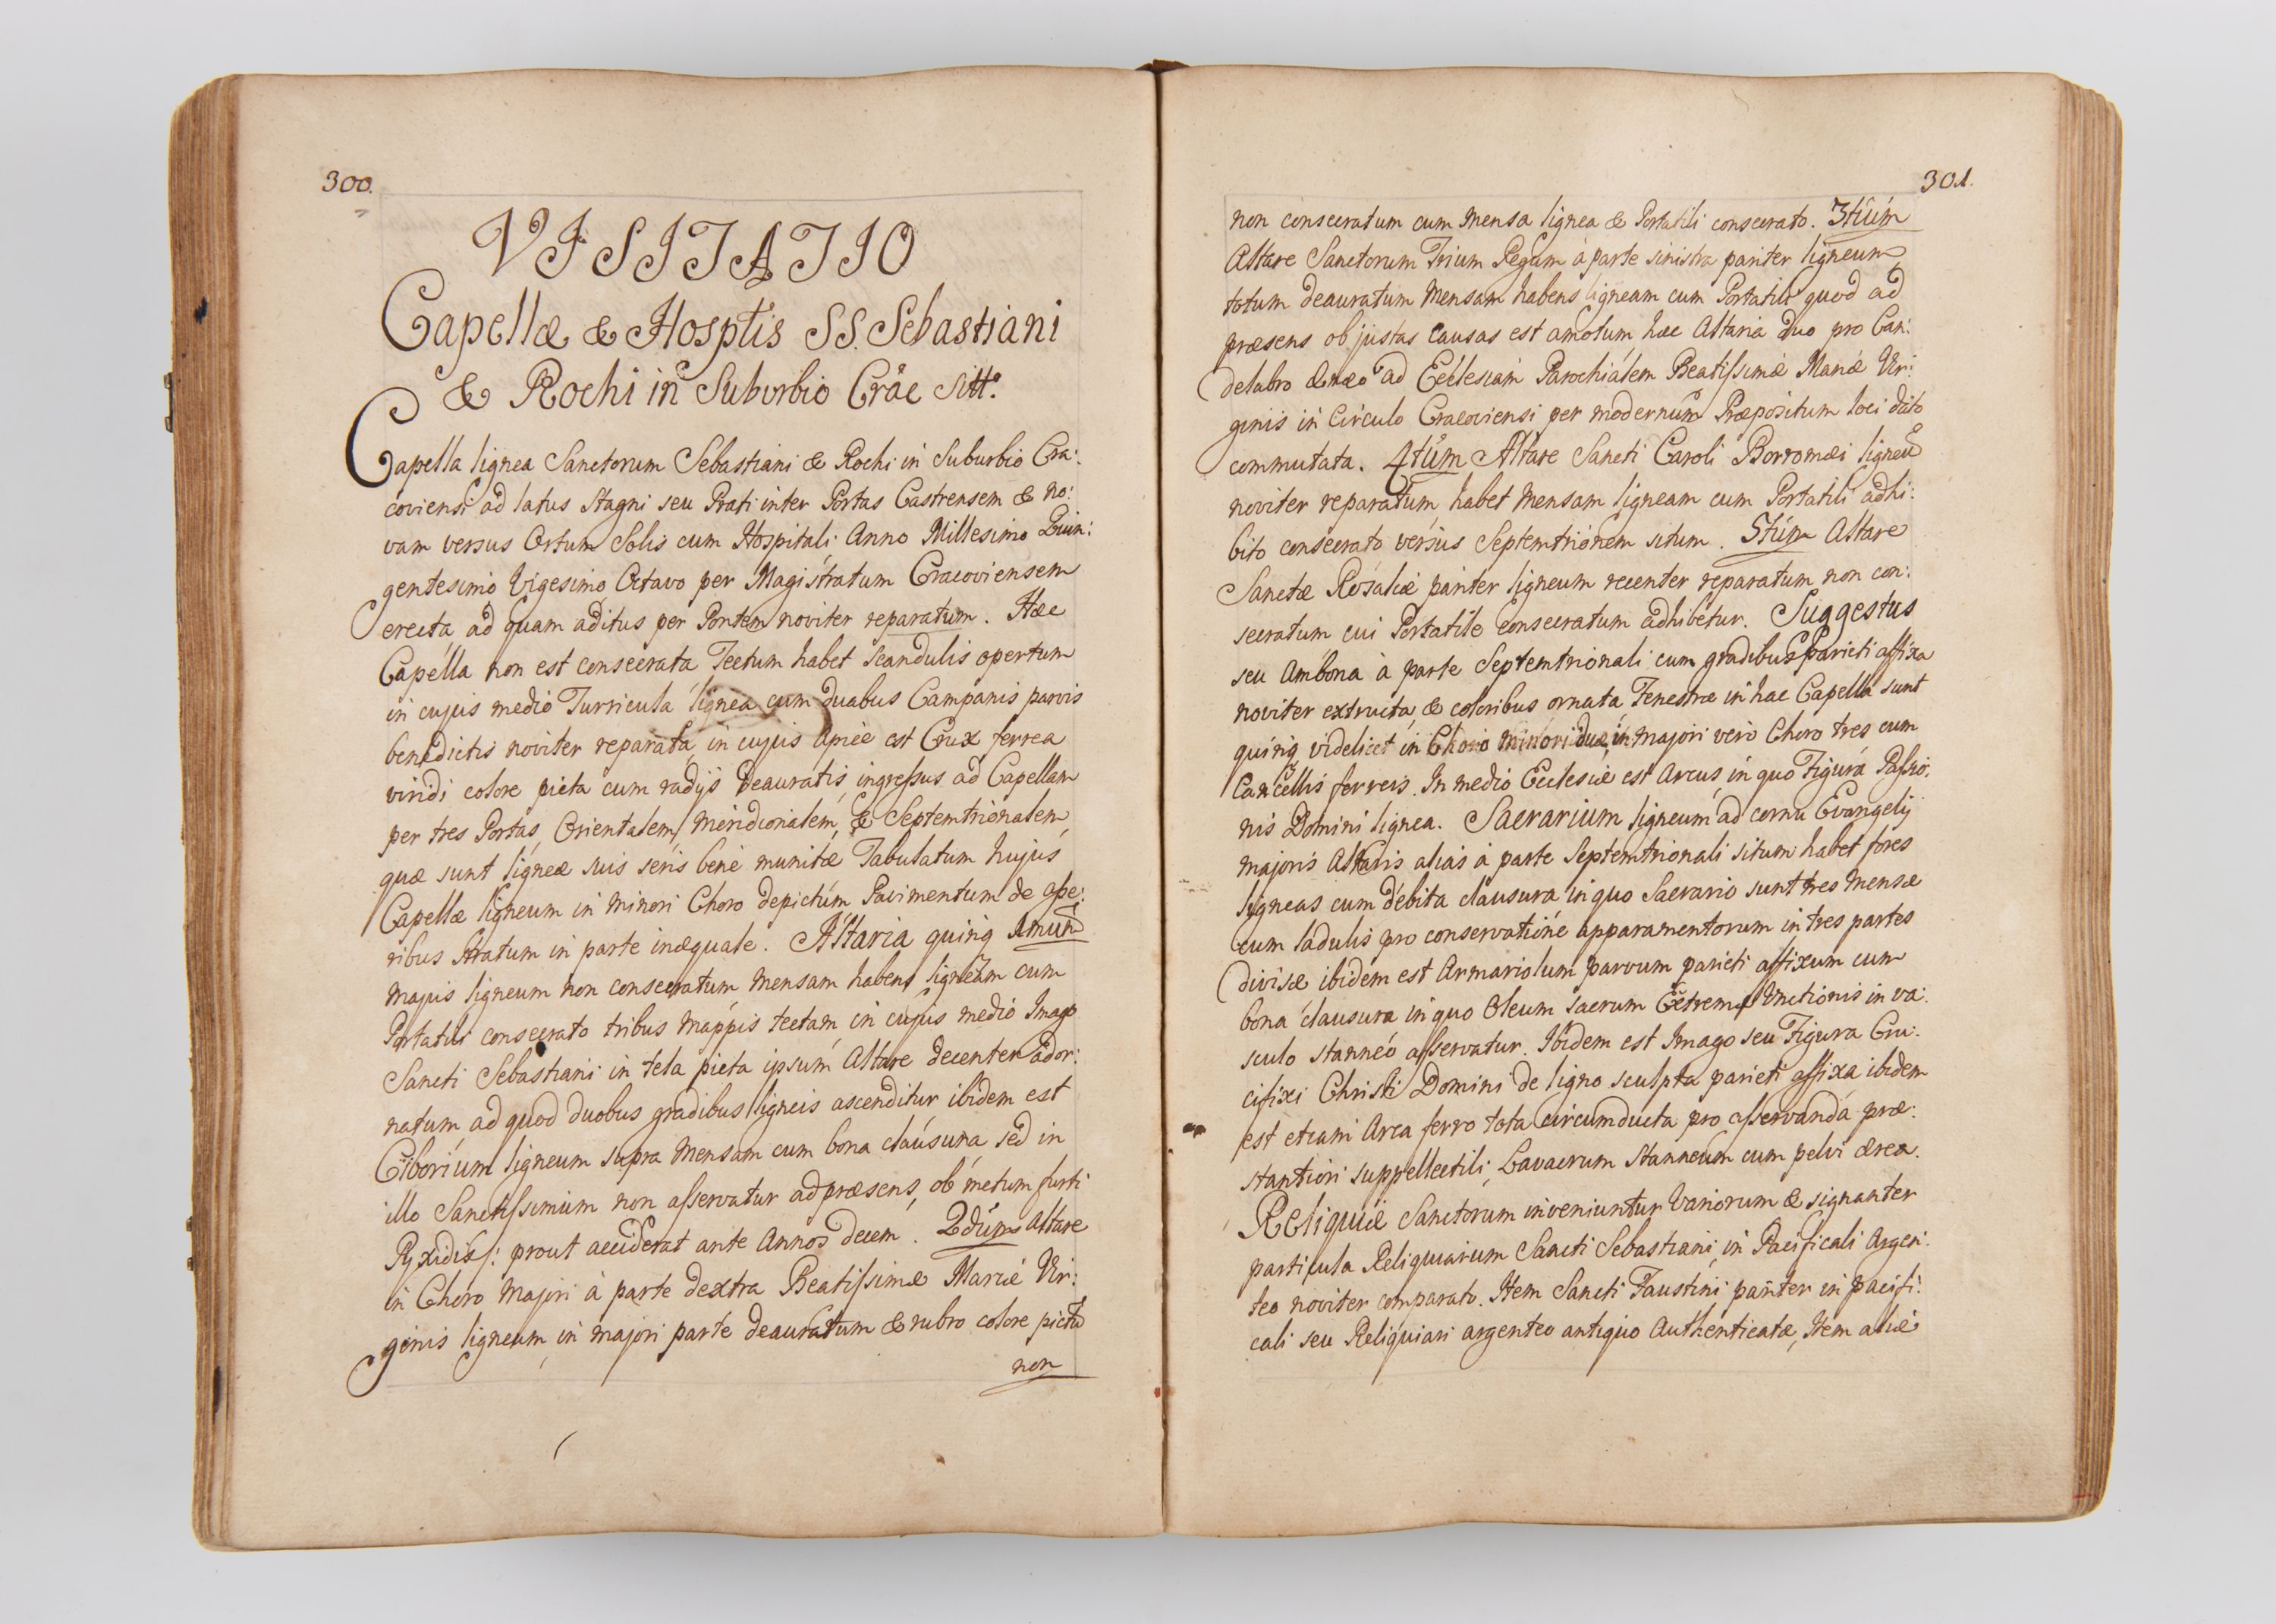 300.
VISITATIO
Capellæ & Hosptis SS. Sebastiani
& Rochi in Suburbio Crae Sitt.
Capella lignea Sanctorum Sebastiani & Rochi in Suburbio Cra:
coviensi ad latus Stagni seu Prati inter Portas Castrensem & No:
vam versus Ortum Solis cum Hospitali Anno Millesimo Quin:
gentesimo Vigesimo Octavo per Magistratum Cracoviensem
erecta, ad quam aditus per Pontem noviter reparatum. Hæc
Capella non est consecrata, Tectum habet scandulis opertum
in cujus medio Turricula lignea cum duabus Campanis parvis
benedictis noviter reparata, in cujus apice est Crux ferrea
viridi colore picta cum radijs deauratis, ingressus ad Capellam
per tres Portas, Orientalem, Meridionalem, & Septemtrionalem,
quæ sunt ligneæ suis seris bene munitæ Tabulatum hujus
Capellæ ligneum in minori Choro depictum Pavimentum de asse:
ribus stratum in parte inæquale. Altaria quinq 1mum
majus ligneum non consecratum mensam habens ligneam cum
Portatili consecrato tribus mappis tectam in cujus medio Imago
Sancti Sebastiani in tela picta ipsum Altare decenter ador:
natum, ad quod duobus gradibus ligneis ascenditur ibidem est
Ciborium ligneum supra Mensam cum bona clausura, sed in
illo Sanctissimum non asservatur ad præsens, ob metum furti
Pyxidis /: prout acciderat ante Annos decem. 2dum Altare
in Choro Majori à parte dextra Beatissimæ Mariæ Vir:
ginis ligneum, in majori parte deauratum & rubro colore pictu
non
301.
non consecratum cum mensa lignea & Portatili consecrato. 3tium
Altare Sanctorum Trium Regum à parte sinistra pariter ligneum,
totum deauratum Mensam habens ligneam cum Portatili quod ad
præsens ob justas Causas est amotum hæc Altaria duo pro Can:
delabro æneo ad Ecclesiam Parochialem Beatissimæ Mariæ Vir:
ginis in Circulo Cracoviensi per modernum Præpositum loci dato
commutata. 4tum Altare Sancti Caroli Borromæi ligneu
noviter reparatum, habet Mensam ligneam cum Portatili adhi:
bito consecrato versus Septemtrionem situm. 5tum Altare
Sanctæ Rosaliæ pariter ligneum recenter reparatum non con:
secratum cui Portatile consecratum adhibetur. Suggestus
seu Ambona à parte Septemtrionali cum gradibus Parieti affixa
noviter extructa, & coloribus ornata Fenestræ in hac Capella sunt
quinq videlicet in Choro minori duæ, in majori vero Choro tres cum
Cancellis ferreis. In medio Ecclesiæ est Arcus, in quo Figura Passio:
nis Domini lignea. Sacrarium ligneum ad cornu Evangelij
majoris Altaris alias à parte Septemtrionali situm habet fores
ligneas cum debita clausura in quo Sacrario sunt tres mensæ
cum ladulis pro conservatione apparamentorum in tres partes
divisæ ibidem est Armariolum parvum parieti affixum cum
bona clausura in quo Oleum sacrum Extremæ Unctionis in va:
sculo stanneo asservatur. Ibidem est Imago seu Figura Cru:
cifixi Christi Domini de ligno sculpta parieti affixa ibidem
est etiam Arca ferro tota circumducta pro asservanda præ:
stantiori suppellectili, Lavacrum Stanneum cum pelvi ærea.
Reliquiæ Sanctorum inveniuntur Variorum & signanter
particula Reliquiarum Sancti Sebastiani, in Pacificali Argen:
teo noviter comparato. Item Sancti Faustini pariter in pacifi:
cali seu Reliquiari argenteo antiquo Authenticatæ, Item aliæ